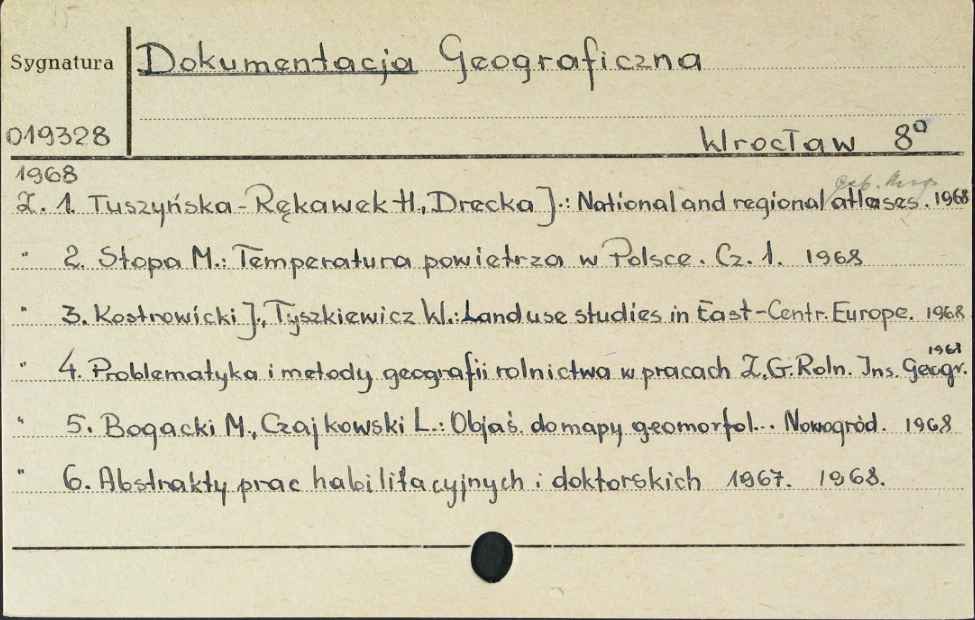 Sygnatura
Dokumentacja Geograficzna
019328
Wrocław 8°
1968
Z. 1. Tuszyńska-Rękawek H., Drecka J.: National and regional atlases. 1968
" 2. Stopa M.: Temperatura powietrza w Polsce. Cz. 1. 1968
" 3. Kostrowicki J., Tyszkiewicz W.: Land use studies in East-Centr. Europe. 1968
" 4. Problematyka i metody geografii rolnictwa w pracach Z.G. Roln. Ins. Geogr. 1968
" 5. Bogacki M., Czajkowski L.: Objaś. do mapy geomorfol... Nowogród. 1968
" 6. Abstrakty prac habilitacyjnych i doktorskich 1967. 1968.